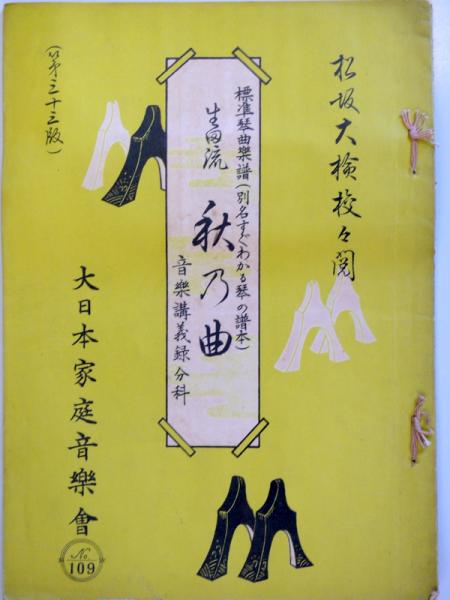 松坂大検校々閲
標準琴曲樂譜(別名すぐわかる琴の譜本)
生田流 秋乃曲
音樂講義録分科
(第三十三版)
大日本家庭音樂會
No.
109